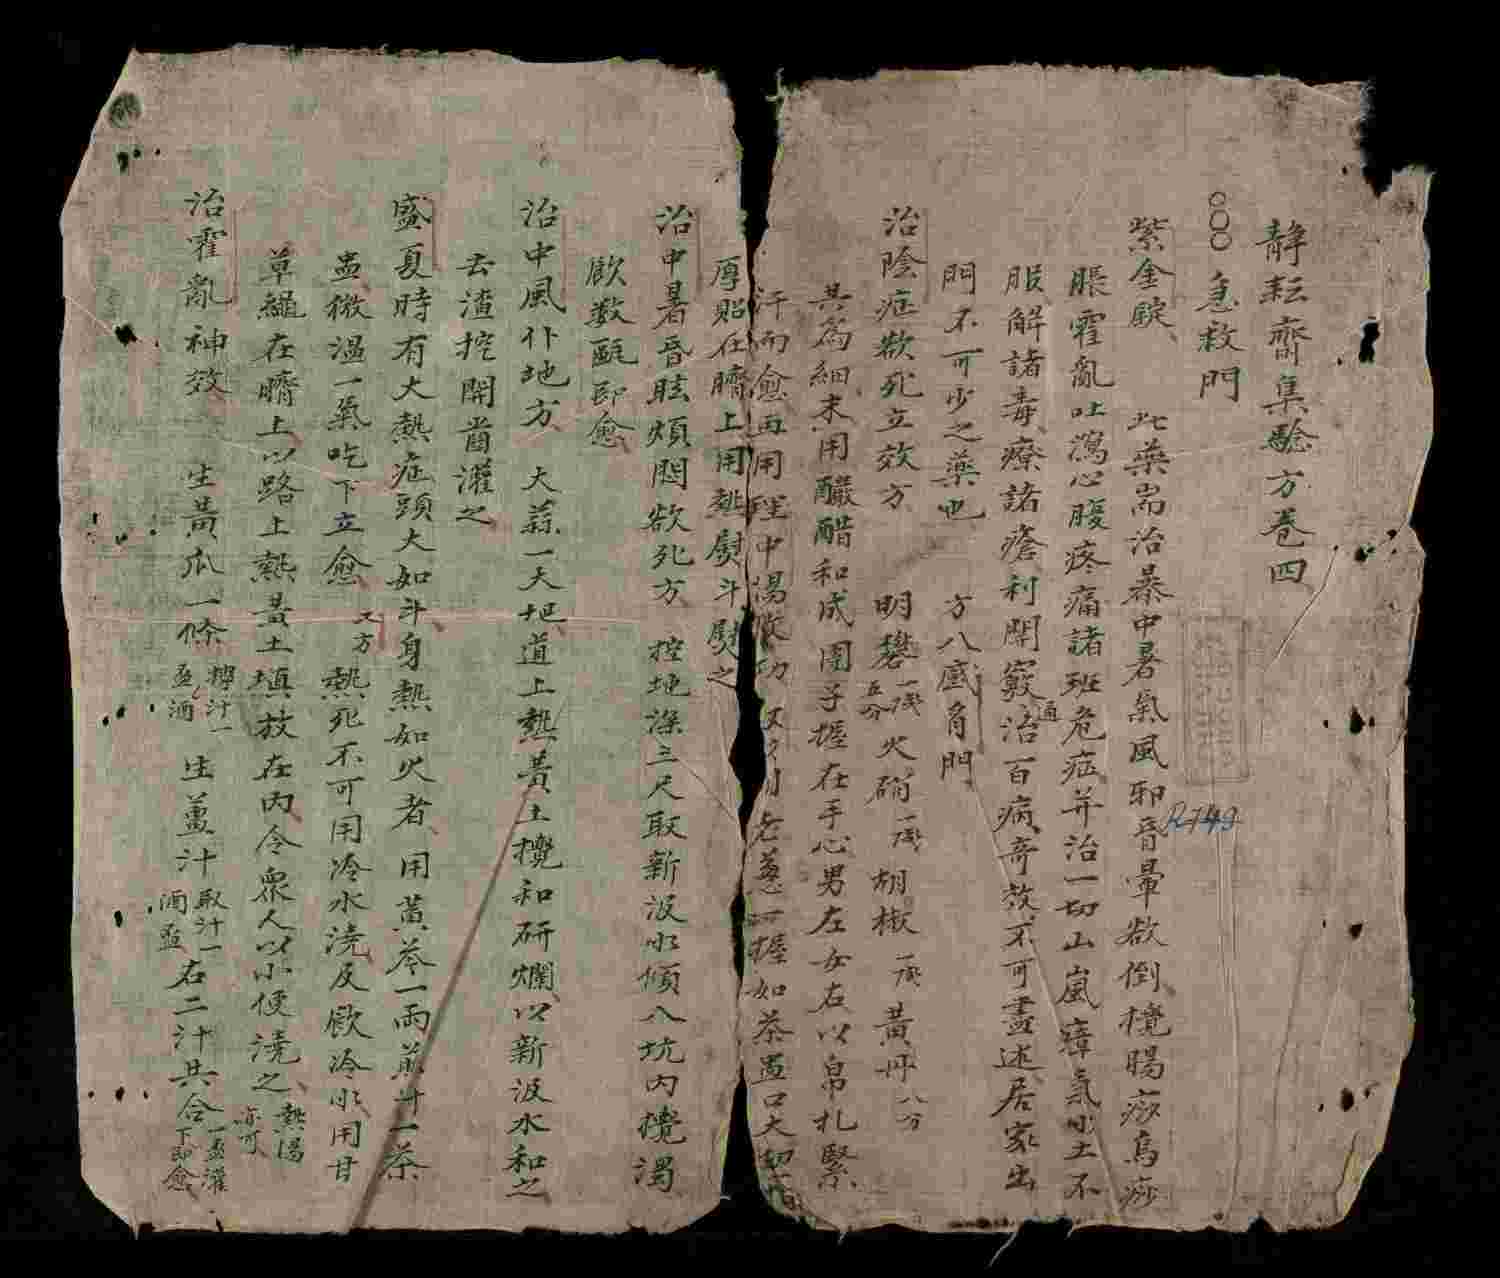 静耘齋集驗方卷四
急救門
紫金錠 此藥耑治暴中暑氣風邪昏暈欲倒攪腸痧烏痧
脹霍亂吐瀉心腹疼痛諸班危症并治一切山嵐瘴氣水土不
服解諸毒療諸瘡利関竅通治百病奇效不可盡述居家出
門不可少之藥也 方八感有門
治陰症欲死立效方 明礬一錢五分 火硝一錢 胡椒一錢 黃丹八分
共為細末用釅醋和成團子握在手心男左女右以帛扎緊
汗而愈再用理中湯收功 又方用老蔥一握如茶盃口大切一指
厚貼在臍上用熱熨斗熨之
治中暑昏眩煩悶欲死方 挖地深三尺取新汲水傾入坑内攪濁
飲数甌即愈
治中風仆地方 大蒜一大把道上熱黃土攪和研爛以新汲水和之
去渣挖開齒灌之
盛夏時有大熱症頭大如斗身熱如火者 用黃芩一兩煎汁一茶
盅微溫一氣吃下立愈 又方 熱死不可用冷水澆及飲冷水用甘
草繩在臍上以路上熱黃土填放在内令衆人以小便澆之 熱湯亦可
治霍亂神效 生黃瓜一條 擰汁一酒盃 生薑汁 取汁一酒盃 右二汁共合一盃灌下即愈
R749